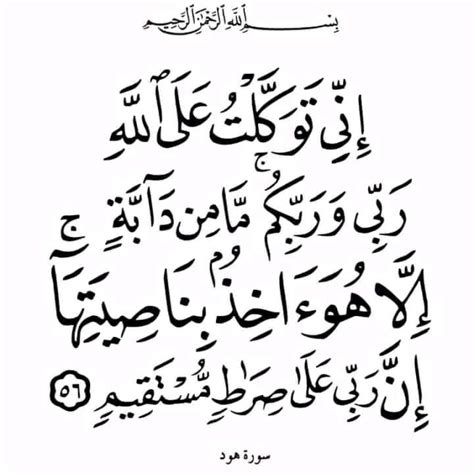 بِسْمِ ٱللَّهِ ٱلرَّحْمَٰنِ ٱلرَّحِيمِ
إِنِّي تَوَكَّلْتُ عَلَى ٱللَّهِ
رَبِّي وَرَبِّكُم ۚ مَّا مِن دَآبَّةٍ
إِلَّا هُوَ ءَاخِذٌۢ بِنَاصِيَتِهَآ ۚ
إِنَّ رَبِّي عَلَىٰ صِرَٰطٍ مُّسْتَقِيمٍ ٥٦
سورة هود